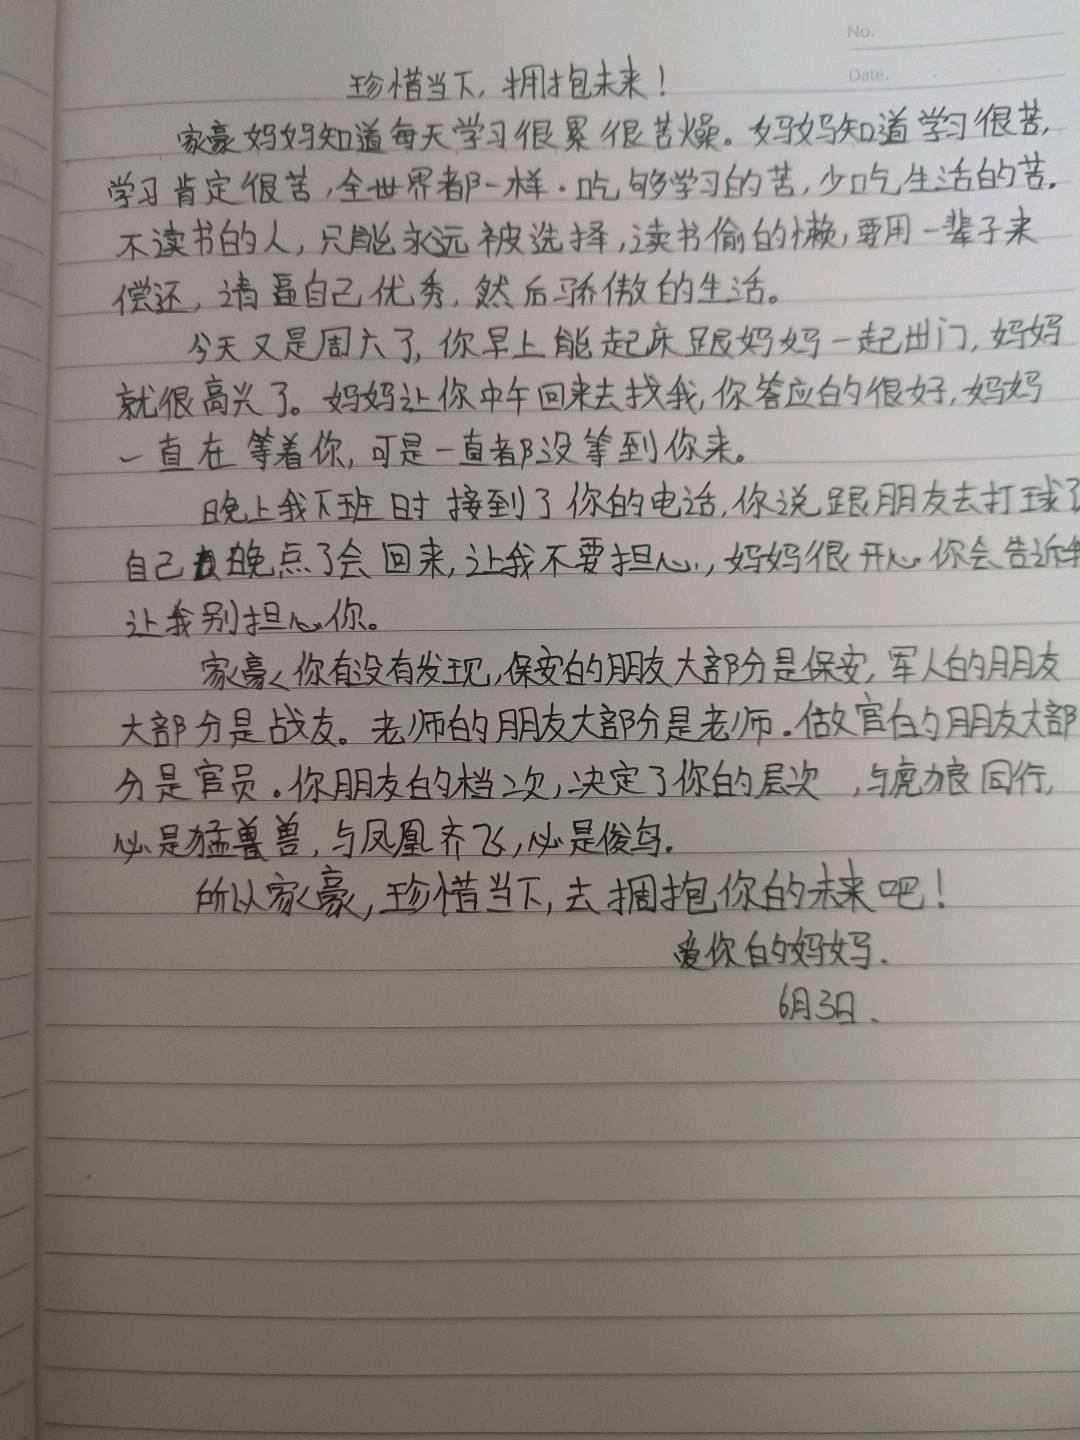 No.
Date.
珍惜当下，拥抱未来！
家豪妈妈知道每天学习很累很苦燥。妈妈知道学习很苦，
学习肯定很苦，全世界都一样．吃够学习的苦，少吃生活的苦．
不读书的人，只能永远被选择，读书偷的懒，要用一辈子来
偿还，请逼自己优秀，然后骄傲的生活。
今天又是周六了，你早上能起床跟妈妈一起出门，妈妈
就很高兴了。妈妈让你中午回来去找我，你答应的很好，妈妈
一直在等着你，可是一直都没等到你来。
晚上我下班时接到了你的电话，你说跟朋友去打球了
自己晚点了会回来，让我不要担心，妈妈很开心你会告诉我
让我别担心你。
家豪你有没有发现，保安的朋友大部分是保安，军人的朋友
大部分是战友。老师的朋友大部分是老师．做官的朋友大部
分是官员．你朋友的档次，决定了你的层次，与虎狼同行，
必是猛兽，与凤凰齐飞，必是俊鸟．
所以家豪，珍惜当下，去拥抱你的未来吧！
爱你的妈妈．
6月3日．